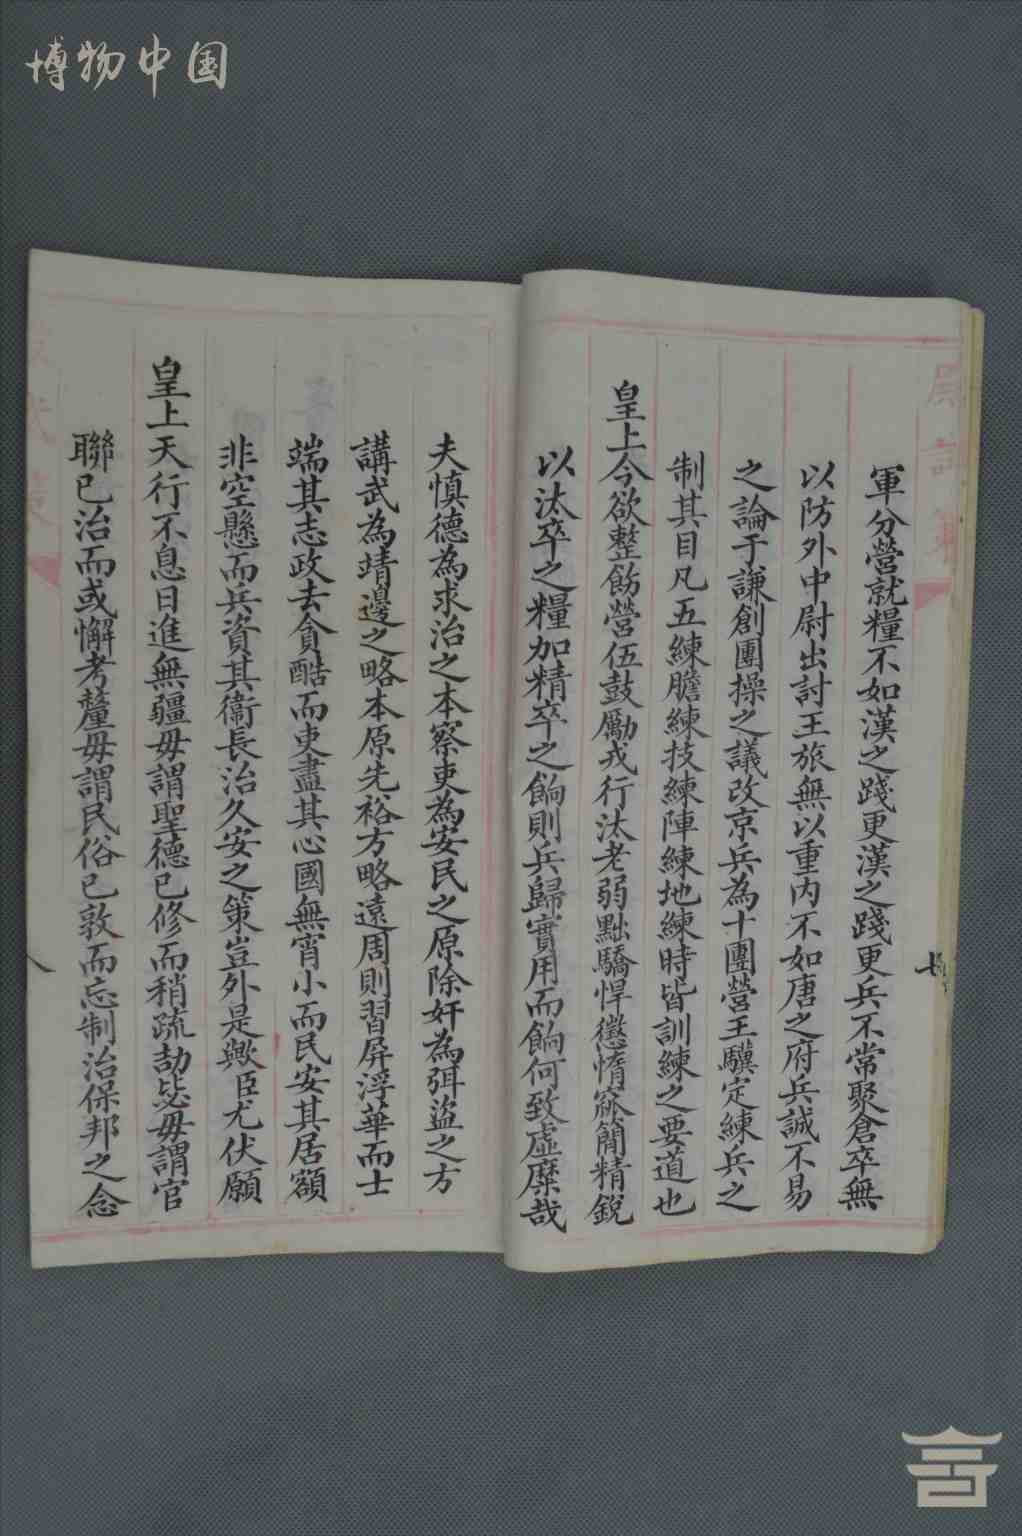 博物中国
軍分營就糧不如漢之踐更漢之踐更兵不常聚倉卒無
以防外中尉出討王旅無以重內不如唐之府兵誠不易
之論于謙創團操之議改京兵為十團營王驥定練兵之
制其目凡五練膽練技練陣練地練時皆訓練之要道也
皇上今欲整飭營伍鼓勵戎行汰老弱黜驕悍懲惰窳簡精銳
以汰卒之糧加精卒之餉則兵歸實用而餉何致虛糜哉
夫慎德為求治之本察吏為安民之原除奸為弭盜之方
講武為靖邊之略本原先裕方略遠周則習屏浮華而士
端其志政去貪酷而吏盡其心國無宵小而民安其居額
非空懸而兵資其衞長治久安之策豈外是歟臣尤伏願
皇上天行不息日進無疆毋謂聖德已修而稍疏劼毖毋謂官
聯已治而或懈考釐毋謂民俗已敦而忘制治保邦之念